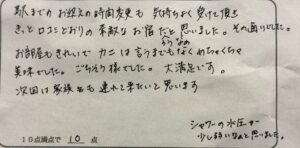 駅までのお迎えの時間変更も気持ちよく受けて頂き
きっと口コミどおりの素敵なお宿だろうなと思いました。その通りでした。
お部屋もきれいでカニは言うまでもなくめちゃくちゃ
美味でした。ごちそう様でした。大満足です。
次回は家族も連れて来たいと思います
シャワーの水圧が
少し弱いなんと思いました。
10点満点で 10 点